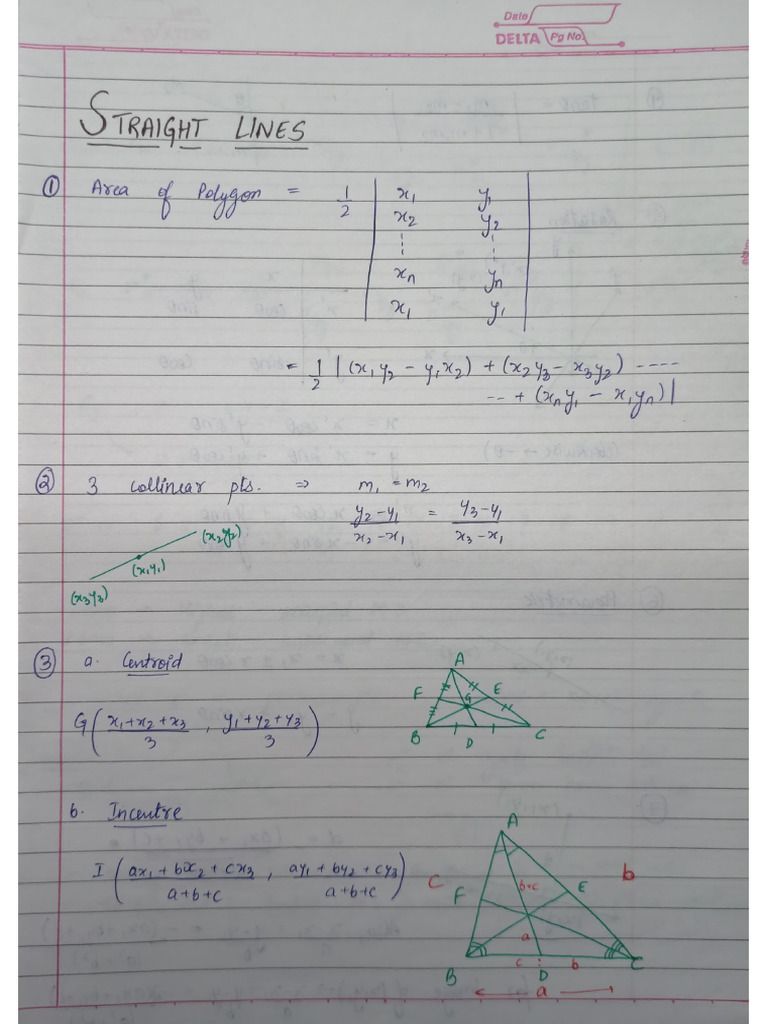 Date
DELTA Pg No.
STRAIGHT LINES
① Area of Polygon = 1/2 | x₁ y₁
x₂ y₂
⋮ ⋮
xₙ yₙ
x₁ y₁ |
= 1/2 | (x₁y₂ - y₁x₂) + (x₂y₃ - x₃y₂) ----
-- + (xₙy₁ - x₁yₙ) |
② 3 collinear pts. ⇒ m₁ = m₂
(y₂-y₁)/(x₂-x₁) = (y₃-y₁)/(x₃-x₁)
(x₂y₂)
(x₁y₁)
(x₃y₃)
③ a. Centroid
A
F G E
B D C
G( (x₁+x₂+x₃)/3 , (y₁+y₂+y₃)/3 )
b. Incentre
A
I( (ax₁+bx₂+cx₃)/(a+b+c) , (ay₁+by₂+cy₃)/(a+b+c) )
c F b+c E b
a
B c D b C
a